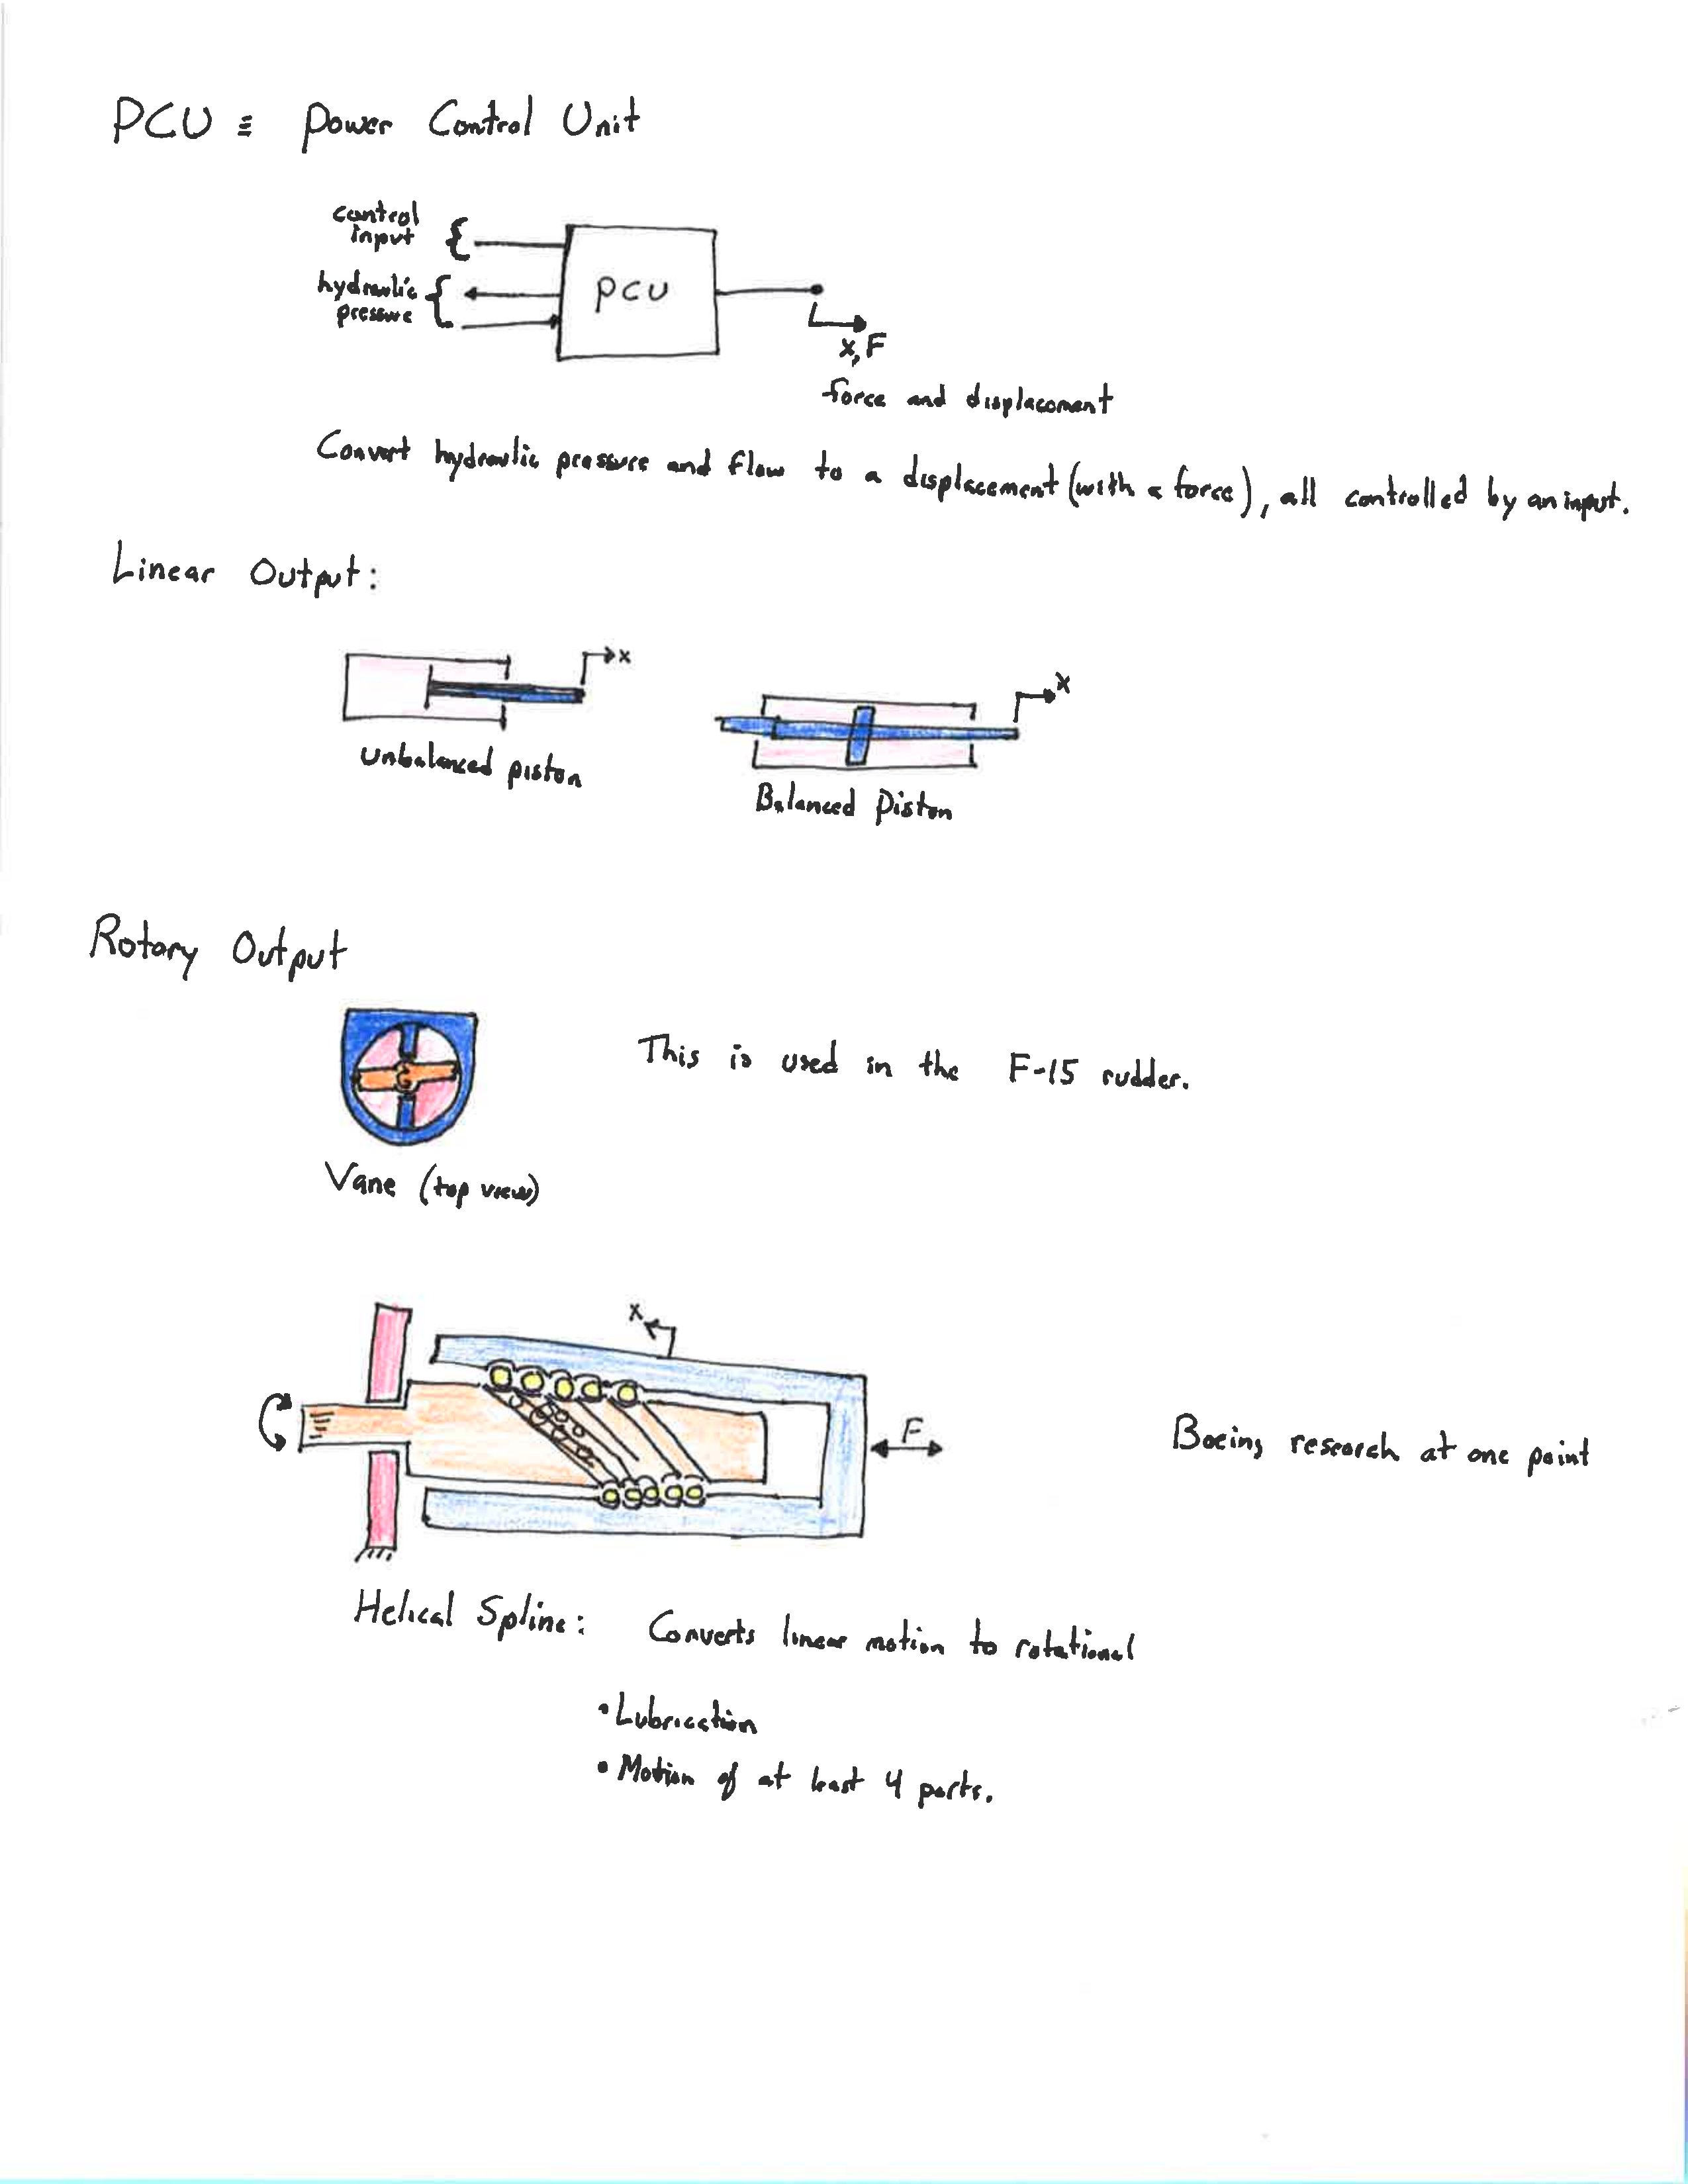 PCU ≡ Power Control Unit
control
input
hydraulic
pressure
PCU
x, F
force and displacement
Convert hydraulic pressure and flow to a displacement (with a force), all controlled by an input.
Linear Output:
x
x
Unbalanced piston
Balanced Piston
Rotary Output
This is used in the F-15 rudder.
Vane (top view)
x
F
Boeing research at one point
Helical Spline: Converts linear motion to rotational
• Lubrication
• Motion of at least 4 parts.